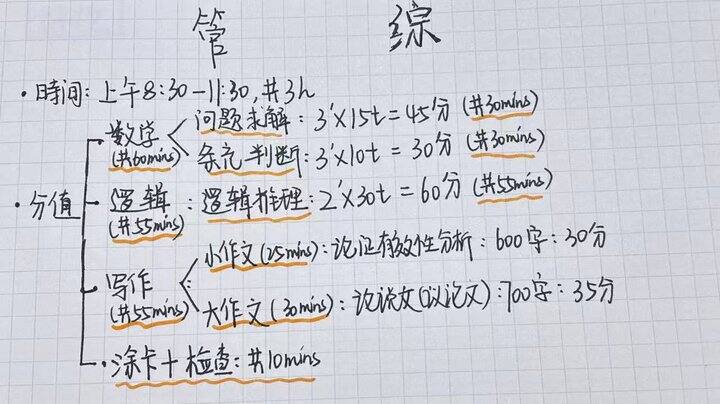 管 综
·时间:上午8:30-11:30,共3h
·分值
数学(共60mins)
问题求解:3'×15t=45分(共30mins)
条充判断:3'×10t=30分(共30mins)
逻辑(共55mins):逻辑推理:2'×30t=60分(共55mins)
写作(共55mins)
小作文(25mins):论证有效性分析:600字:30分
大作文(30mins):论说文(议论文):700字:35分
·涂卡+检查:共10mins